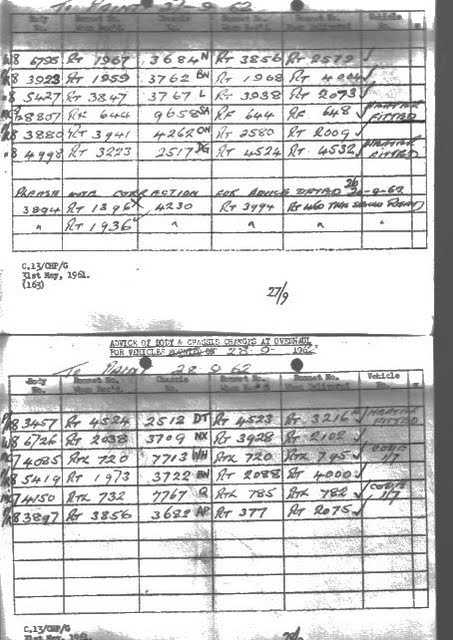 To PAINT 28-9-62
Body No. Bonnet No. When Rec'd. Chassis No. Bonnet No. Bonnet No. When Delivered Vehicle No.
W8 6795 RT 1967 3684 N RT 3856 RT 2579 ✓
3923 RT 1959 3762 BN RT 1968 RT 4004 ✓
8 5427 RT 3847 3767 L RT 3938 RT 2073 ✓
8807 RF 644 9658 SA RF 644 RF 648 ✓ HEATER FITTED
8 3880 RT 3941 4262 ON RT 2580 RT 2009 ✓
8 4998 RT 3223 2517 DG RT 4524 RT 4532 ✓ HEATER FITTED
PLEASE NOTE CORRECTION FOR ADVICE DATED 26-9-62
3894 RT 1396 X 4230 RT 3994 RT 460 THIS SHOULD READ
" RT 1936 ✓ " " " "
C.13/CHP/G
31st May, 1961.
(163)
27/9
ADVICE OF BODY & CHASSIS CHANGES AT OVERHAUL
FOR VEHICLES MOUNTED ON 28-9- 1962
To PAINT 28-9-62
Body No. Bonnet No. When Rec'd. Chassis No. Bonnet No. When Rec'd. Bonnet No. When Delivered Vehicle No.
8 3457 RT 4524 2512 DT RT 4523 RT 3216 HEATER FITTED
W8 6726 RT 2038 3709 NX RT 3928 RT 2102 ✓
7 4085 RTL 720 7713 WH RTL 720 RTL 795 ✓ CODE 1/7
8 5419 RT 1973 3722 BN RT 2088 RT 4000 ✓
7 4150 RTL 732 7767 Q RTL 785 RTL 782 ✓ CODE 1/7
8 3897 RT 3856 3682 AP RT 377 RT 2075 ✓
C.13/CHP/G
31st May, 1961.